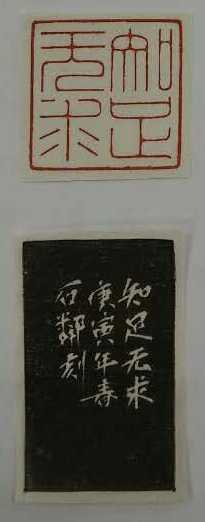 知足
无求
知足无求
庚寅年春
石邻刻